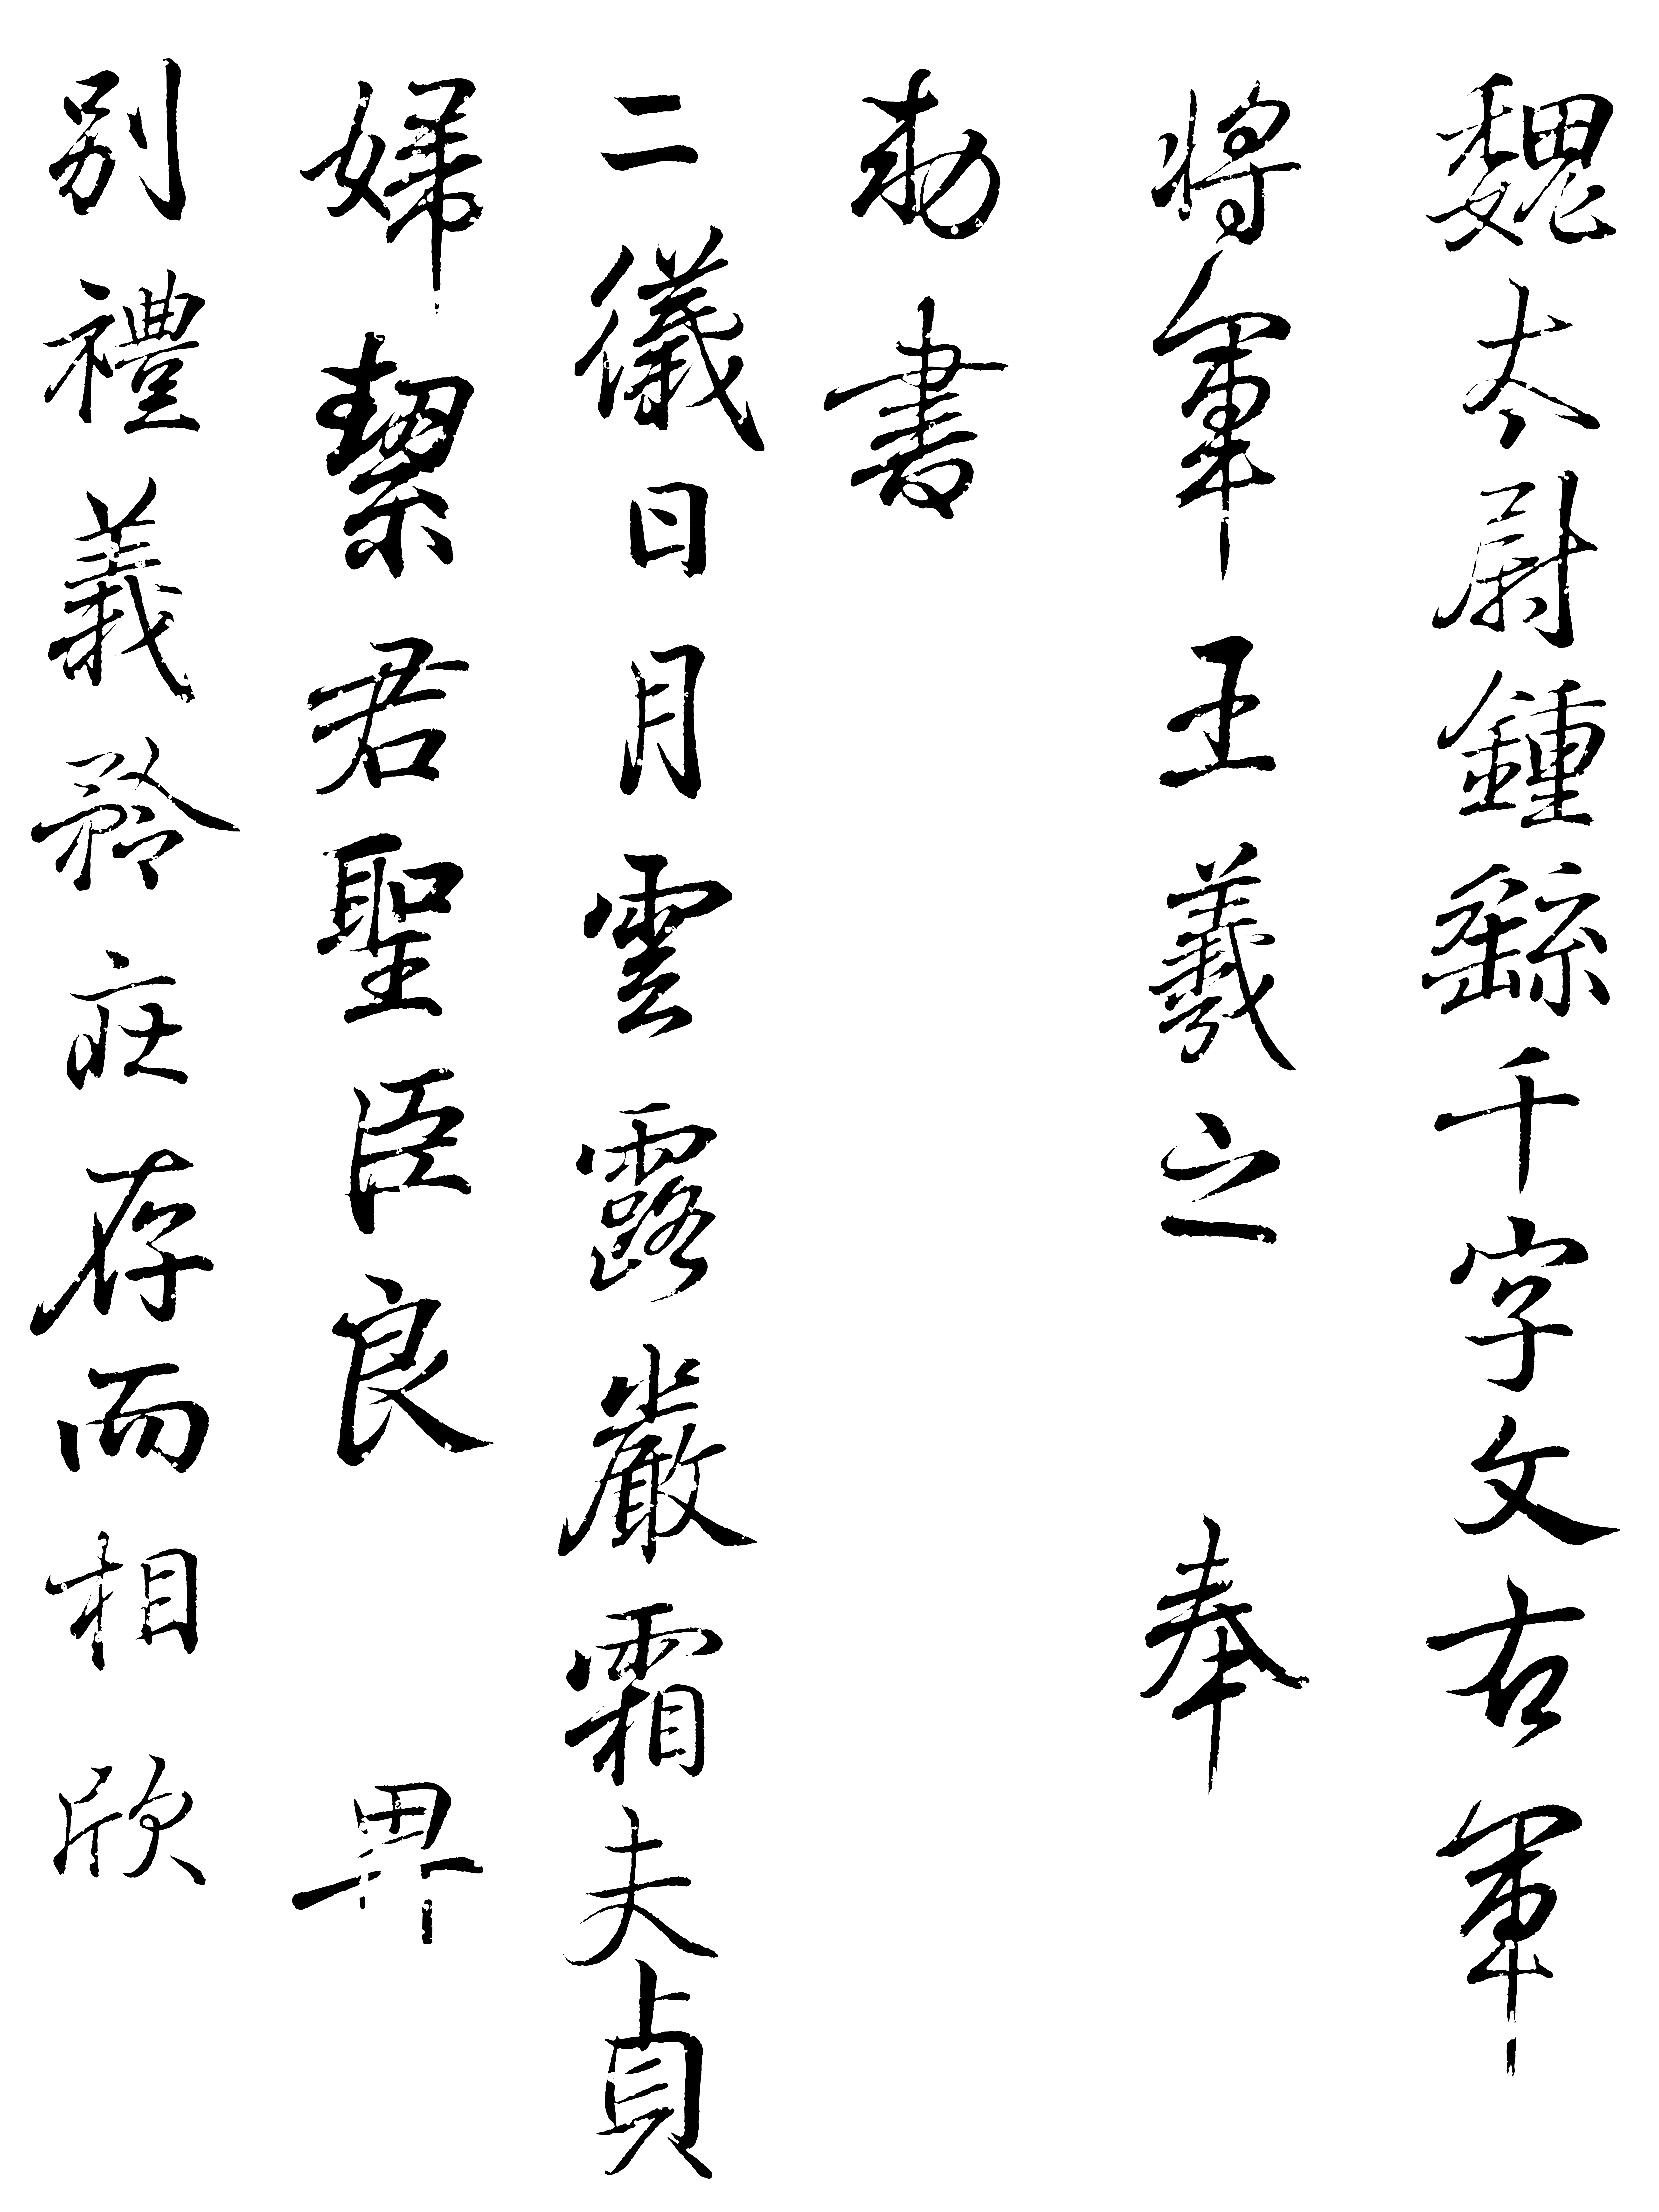 魏太尉鍾繇千字文右軍
將軍王羲之奉
勅書
二儀日月雲露嚴霜夫貞
婦絜君聖臣良
別禮義矜莊存而相欣